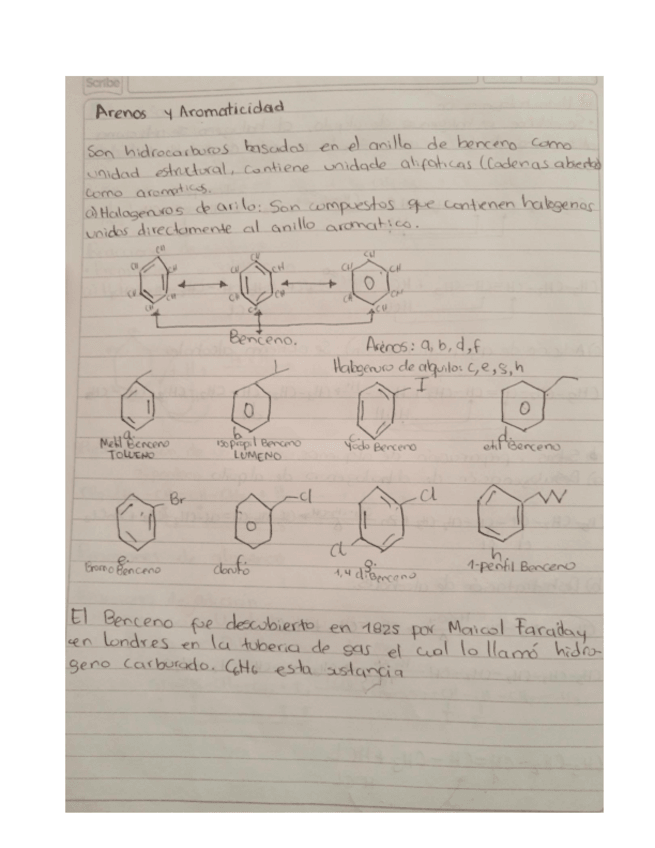 Scribe
Arenos y Aromaticidad
Son hidrocarburos basados en el anillo de benceno como
unidad estructural, contiene unidade alifaticas (Cadenas abierta)
como aromaticos.
a) Halogenuros de arilo: Son compuestos que contienen halogenos
unidos directamente al anillo aromatico.
CH CH CH
CH CH CH CH CH CH
CH CH CH CH CH CH
CH CH CH
Benceno.
Arenos: a, b, d, f
Halogenuro de alquilo: c, e, g, h
I
a b c d
Metil Benceno isopropil Benceno Yodo Benceno etil Benceno
TOLUENO LUMENO
Br Cl Cl
Cl
e f g h
Bromo Benceno cloruro 1,4 di Benceno 1-pentil Benceno
El Benceno fue descubierto en 1825 por Maicol Faraday
en londres en la tuberia de gas el cual lo llamó hidro-
geno carburado. C6H6 esta astancia